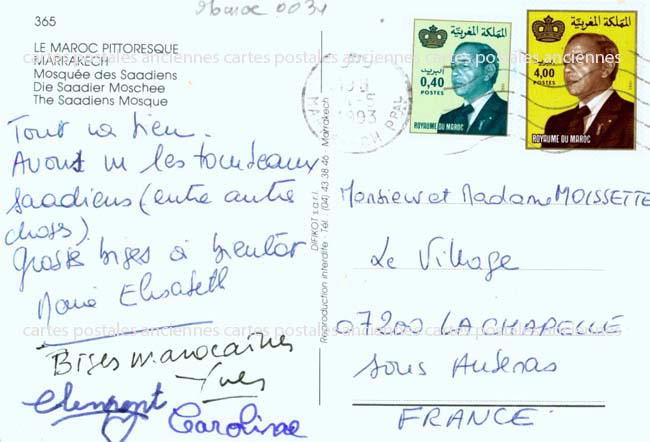 Maroc 0031
365
LE MAROC PITTORESQUE
MARRAKECH
Mosquée des Saadiens
Die Saadier Moschee
The Saadiens Mosque
cartes postales anciennes cartes postales anciennes cartes postales anciennes
Tout va bien.
Avons vu les tombeaux
saadiens (entre autre
choses).
Grosses bises à bientôt
Marie Elisabeth
Bises marocaines
Yves
Clement
Caroline
DIFIKOT s.a.r.l.
Reproduction interdite - Tél. : (04) 43 38 46 - Marrakech
1993
PPAL
المملكة المغربية
البريد
0,40
POSTES
ROYAUME DU MAROC
المملكة المغربية
البريد
4,00
POSTES
ROYAUME DU MAROC
Monsieur et Madame MOISSETTE
Le Village
07200 LA CHAPELLE
sous Aubenas
FRANCE
cartes postales anciennes cartes postales anciennes cartes postales anciennes